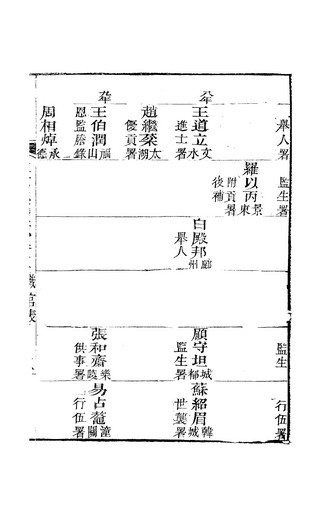 舉人署
王道立文水
進士署
趙繼棻太湖
優貢署
王伯潤山
恩監謄錄
周相焯承德
監生署
羅以丙景東
附貢署
後補
白殿邦州
舉人
監生
顧守坦城
監生署
張和齋樂陵
供事署
行伍署
蘇紹眉韓城
世襲署
易占鼇潼關
行伍署
職官表